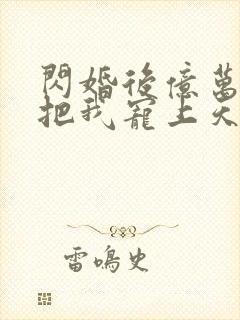 閃婚後億萬
把我寵上天
雷鳴史